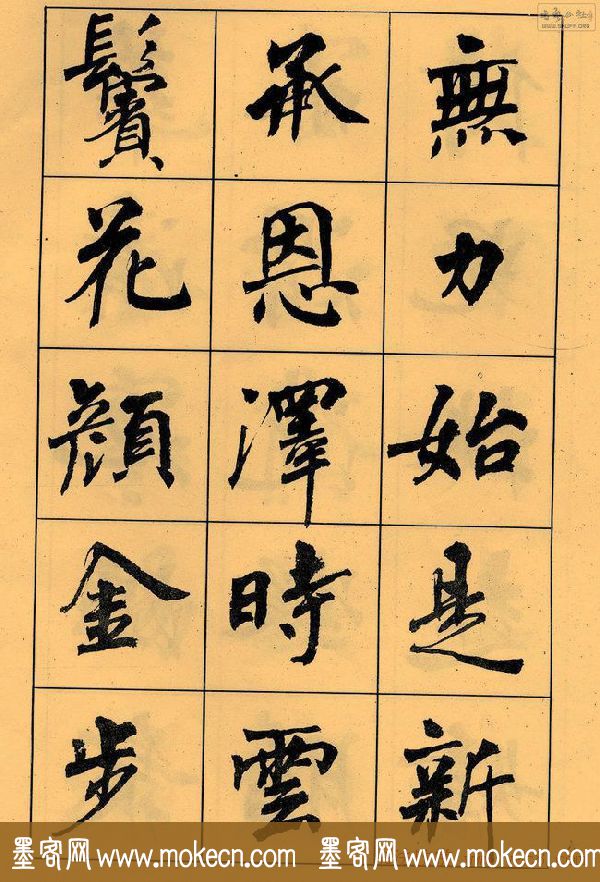 無力始是新
承恩澤時雲
鬢花顔金步
墨客网 www.mokecn.com 墨客网 www.mokecn.com